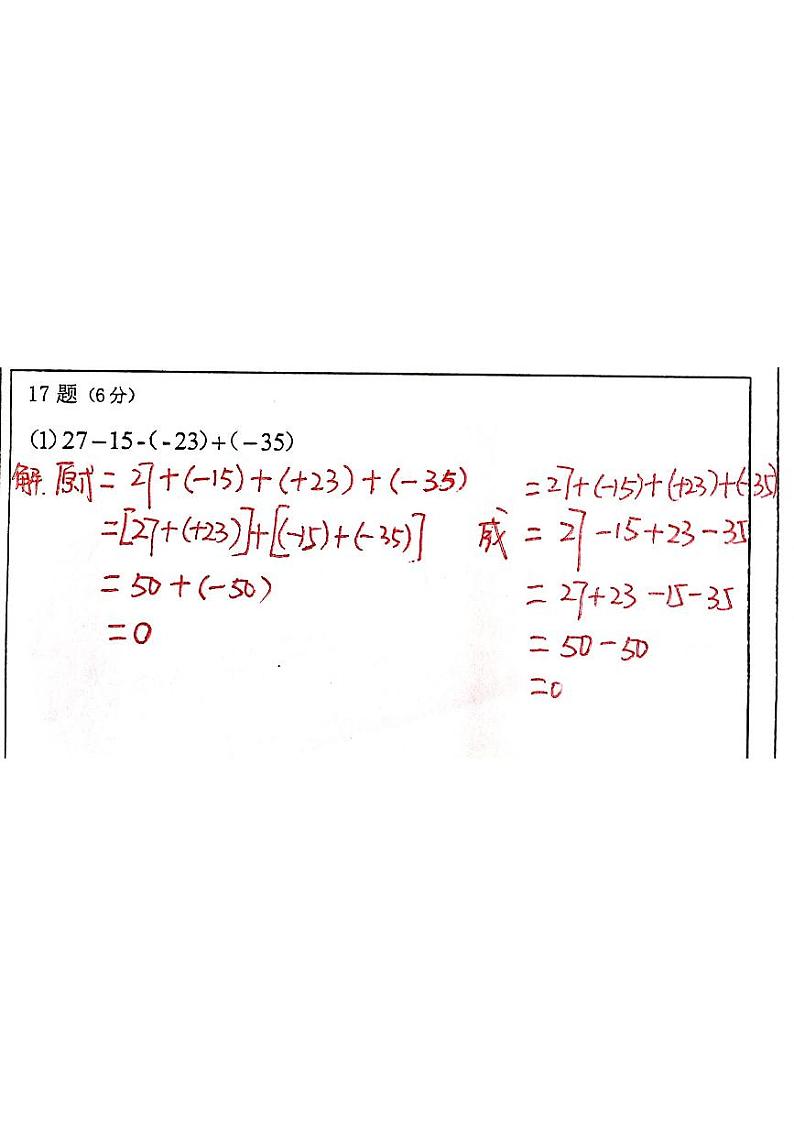 17 题（6分）
(1) 27-15-(-23)+(-35)
解. 原式 = 27+(-15)+(+23)+(-35)
=[27+(+23)]+[(-15)+(-35)]
= 50+(-50)
=0
= 27+(-15)+(+23)+(-35)
或 = 27-15+23-35
= 27+23-15-35
= 50-50
=0